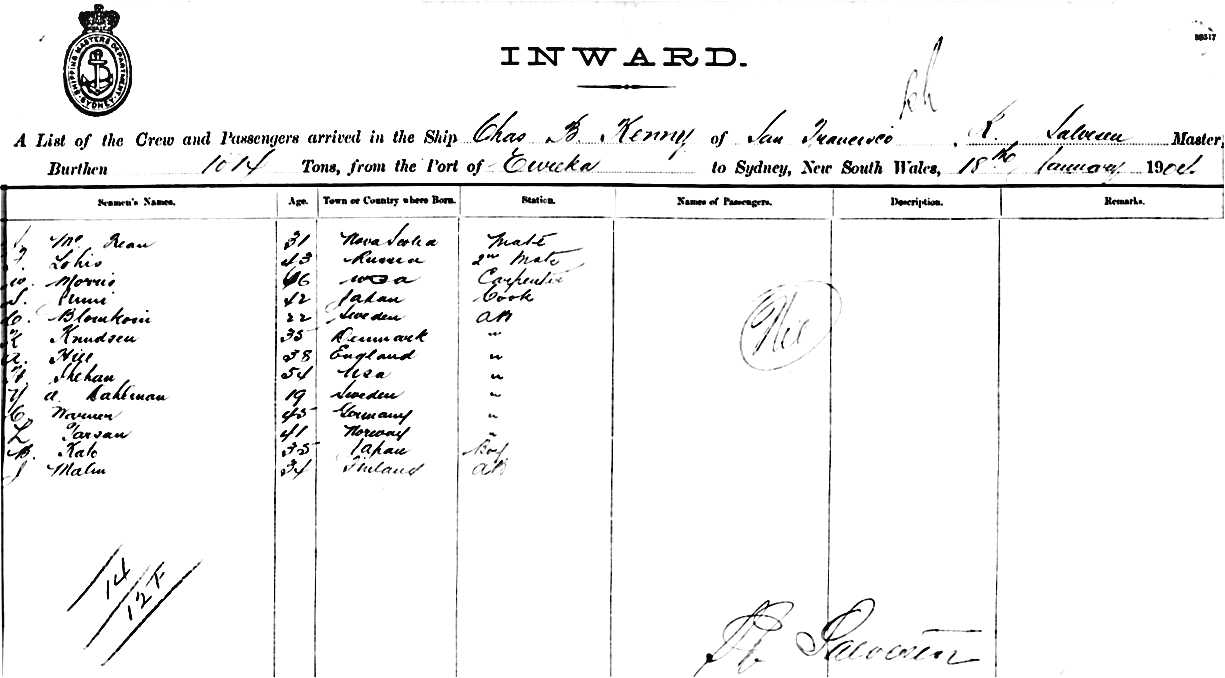 SHIPPING MASTERS DEPARTMENT. SYDNEY.
INWARD.
A List of the Crew and Passengers arrived in the Ship Chas B. Kenny of San Francisco R. Salvesen Master,
Burthen 1014 Tons, from the Port of Eureka to Sydney, New South Wales, 18th January 190
Seamen's Names. Age. Town or Country where Born. Station. Names of Passengers. Description. Remarks.
Mc 31 Nova Scotia Mate
Lohis 43 Russia 2nd Mate
W. Morris 46 USA Carpenter
S. 42 Japan Cook
C. 22 Sweden AB
K Knudsen 35 Denmark "
A. Hill 38 England "
Shehan 54 USA "
A. Dahlman 19 Sweden "
C. Warner 45 Germany "
L 41 Norway "
Kato 35 Japan Boy
J Malin 34 Finland AB
Nil
14
12
Salvesen